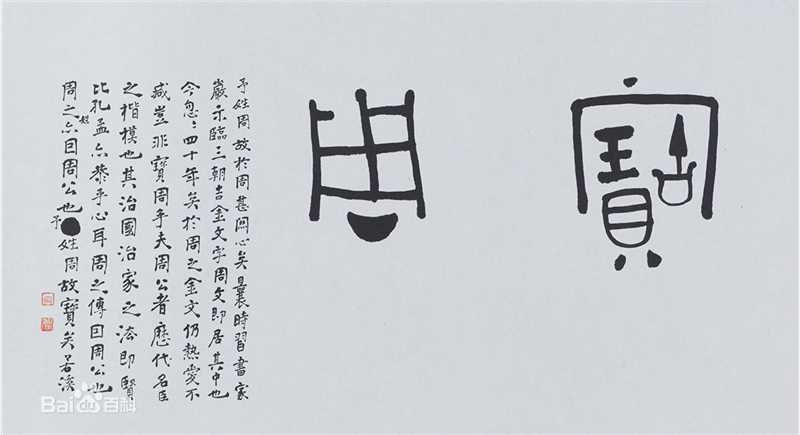 寶
周
予姓周故於周甚関心矣曩時習書家
嚴示臨三朝吉金文字周文即居其中也
今忽〻四十年矣於周之金文仍熱愛不
減豈非寶周乎夫周公者歷代名臣
之楷模也其治國治家之法即賢
比孔孟亦恭乎心耳周之傳曰周公也
周之亦曰周公也予姓周故寶矣若溪
Baidu百科